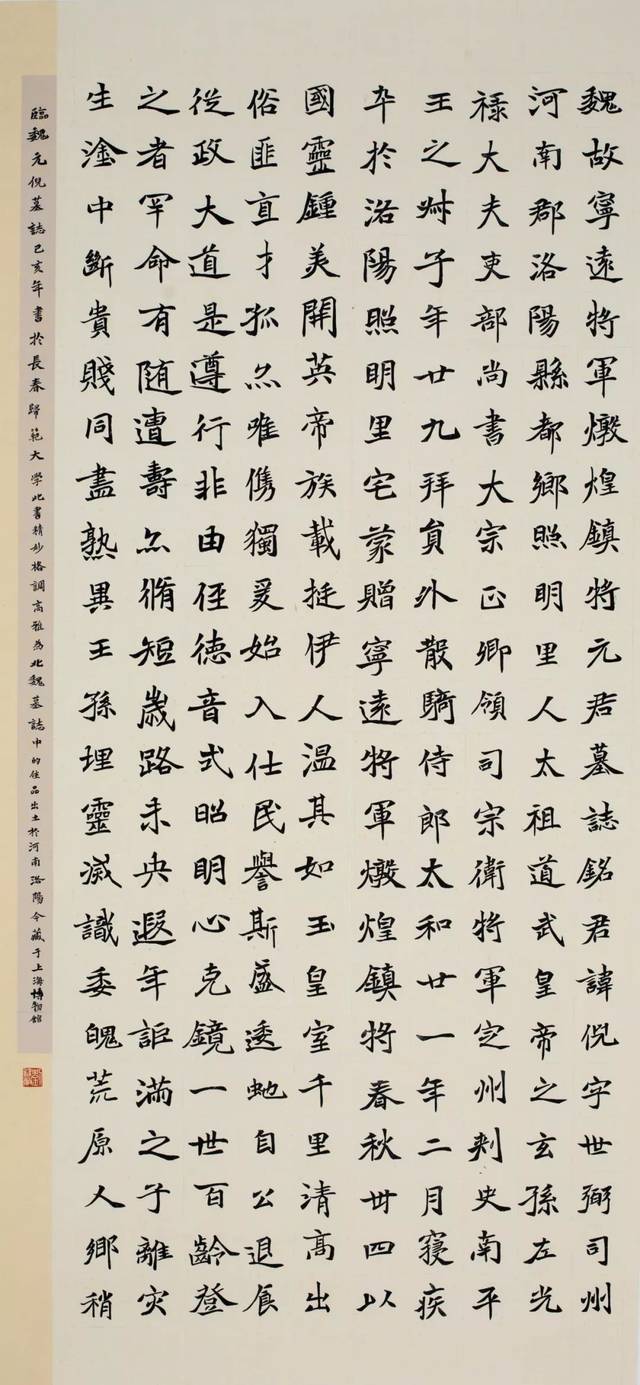 魏故寧遠将軍燉煌鎮将元君墓誌銘君諱倪字世弼司州
河南郡洛陽縣都鄉照明里人太祖道武皇帝之玄孫左光
禄大夫吏部尚書大宗正卿領司宗衛将軍定州刾史南平
王之㳤子年廿九拜負外散騎侍郎太和廿一年二月寝疾
卒於洛陽照明里宅蒙贈寧遠将軍燉煌鎮将春秋卅四以
國靈鍾美開英帝族載挺伊人温其如玉皇室千里清高出
俗匪直才孤亦唯儁獨爰始入仕民譽斯盛逶虵自公退食
従政大道是遵行非由径德音式昭明心克鏡一世百齡登
之者罕命有随遭壽亦脩短歲路未央遐年詎满之子離灾
生淦中斷貴賤同盡熟異王孫埋靈滅識委魄荒原人鄉稍
臨魏元倪墓誌己亥年書於長春師範大學此書精妙格調高雅為北魏墓誌中的佳品出土於河南洛陽今藏于上海博物館